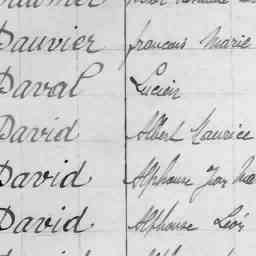 Dauvier françois Marie
Daval Lucien
David Albert Maurice
David Alphonse Jean
David Alphonse Léon